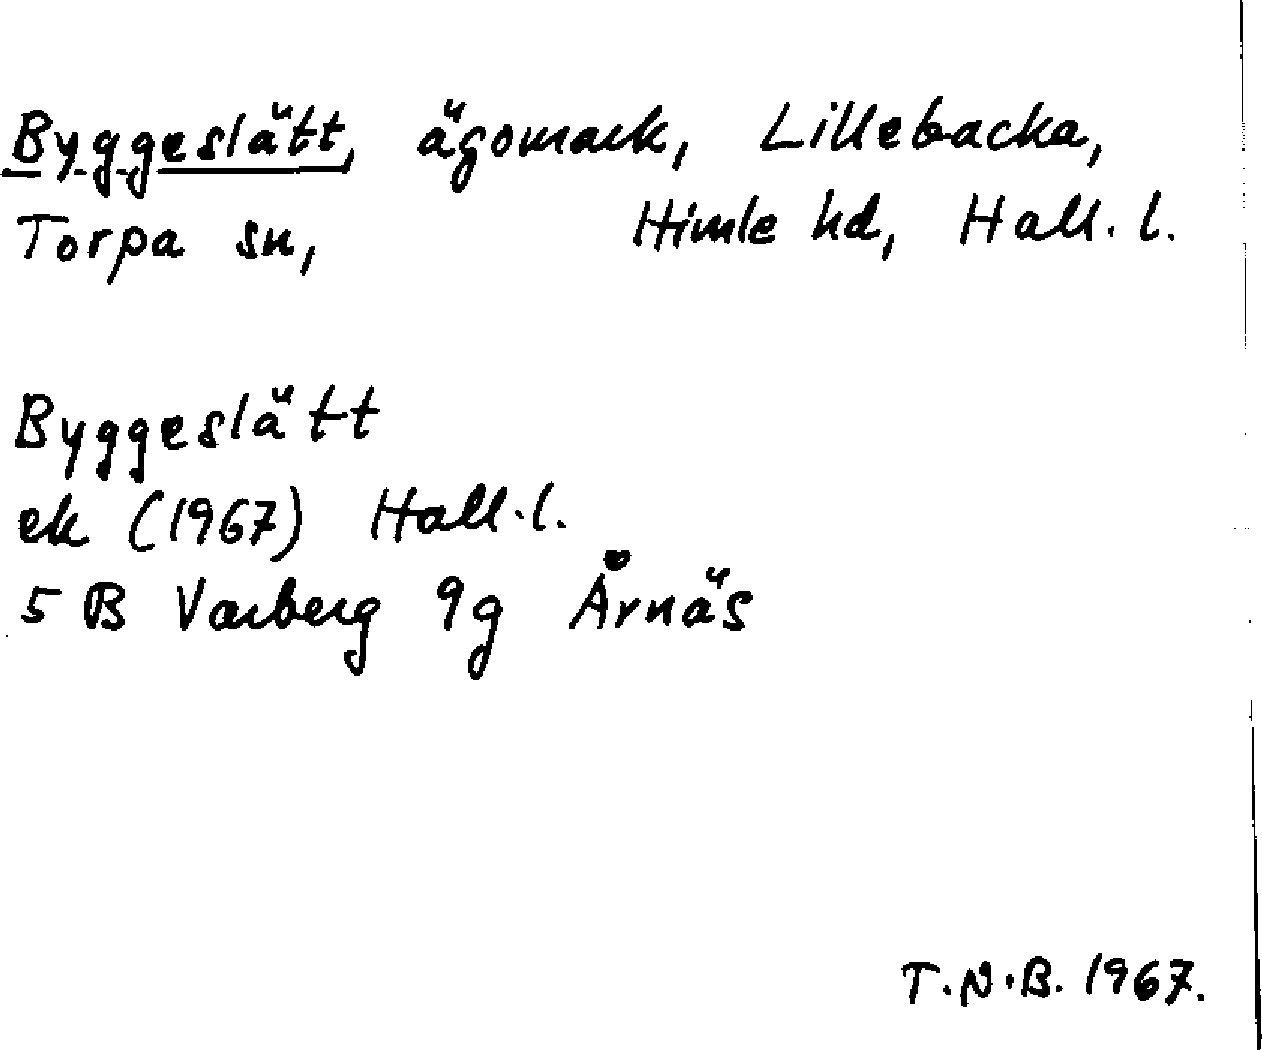 Byggeslätt, ägomark, Lillebacka,
Torpa sn, Himle hd, Hall. l.
Byggeslätt
ek (1967) Hall. l.
5 B Varberg 9g Årnäs
T.N.B. 1967.